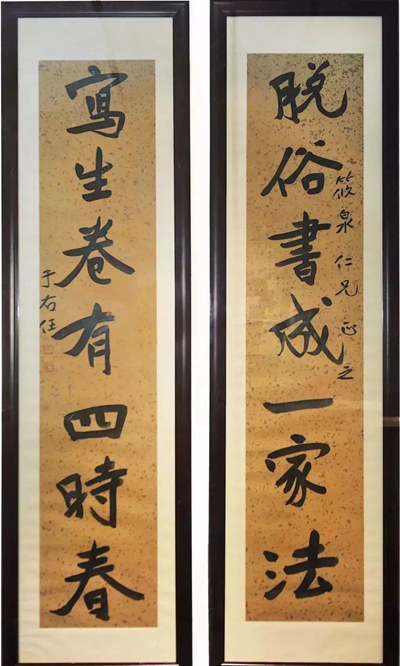 脱俗書成一家法
筱泉仁兄正之
寫生卷有四時春
于右任